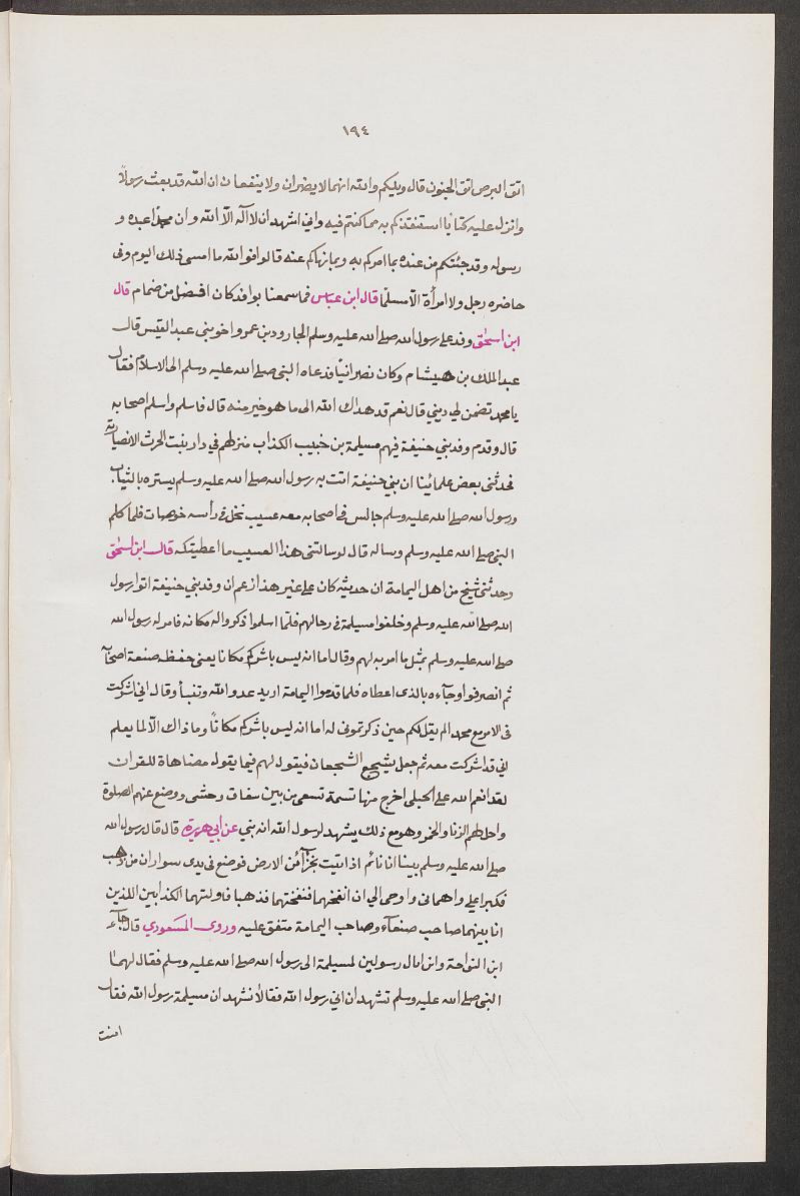 ١٩٤
اتق البرص اتق الجنون قال ويلكم والله انهما لا يضران ولا ينفعان ان الله قد بعث رسولاً
وانزل عليه كتاباً استنقذكم به مما كنتم فيه واني اشهد ان لا اله الا الله وان محمداً عبده و
رسوله وقد جئتكم من عنده بما امركم به وبما نهاكم عنه قالوا فوالله ما امسى ذلك اليوم وفى
حاضره رجل ولا امرأة الا مسلما قال ابن عباس فما سمعنا بوافد كان افضل من ضمام قال
ابن اسحٰق وفد على رسول الله صلى الله عليه وسلم الجارود بن عمرو اخو بنى عبد القيس قال
عبد الملك بن هيشام وكان نصرانياً فدعاه النبى صلى الله عليه وسلم الى الاسلام فقال
يا محمد تضمن لي ديني قال نعم قد هداك الله الى ما هو خير منه قال فاسلم واسلم اصحابه
قال وقدم وفد بني حنيفة فيهم مسيلمة بن خبيب الكذاب منزلهم في دار بنت الحرث الانصارية
فحدثنى بعض علمائنا ان بني حنيفة اتت به رسول الله صلى الله عليه وسلم يستره بالثياب
ورسول الله صلى الله عليه وسلم جالس فى اصحابه معه عسيب نخل فى رأسه خوصات فلما كلم
النبى صلى الله عليه وسلم وساله قال لو سالتنى هذا العسيب ما اعطيتكه قال ابن اسحٰق
وحدثنى شيخ من اهل اليمامة ان حديثه كان على غير هذا زعم ان وفد بني حنيفة اتوا رسول
الله صلى الله عليه وسلم وخلفوا مسيلمة فى رحالهم فلما اسلموا ذكروا له مكانه فامر له رسول الله
صلى الله عليه وسلم بمثل ما امر به لهم وقال اما انه ليس باشركم مكانا يعنى حفظه صنعة اصحابه
ثم انصرفوا وجآءه بالذى اعطاه فلما قدموا اليمامة اريد عدو الله وتنبأ وقال اني اشركت
فى الامر مع محمد الم يقل لكم حين ذكرتمونى له اما انه ليس باشركم مكاناً وما ذاك الا لما يعلم
اني قد اشركت معه ثم جعل يشجع الشجعان فيقول لهم فيما يقول مضاهاة للقران
لقد انعم الله على الحبلى اخرج منها تسمة تسعى من بين سفاق وحشى ووضع عنهم الصلوة
واحل لهم الزنا والخمر وهو مع ذلك يشهد لرسول الله انه بني عن ابي هريرة قال قال رسول الله
صلى الله عليه وسلم بينا انا نائم اذ اتيت بخزآئن الارض فوضع فى يدى سواران من ذهب
فكبرا علي واهمانى واوحى الي ان انفخهما فنفختهما فذهبا فاولتهما الكذابين اللذين
انا بينهما صاحب صنعآء وصاحب اليمامة متفق عليه وروى المسعودي قال جآء
ابن النواحة وابن اثال رسولين لمسيلمة الى رسول الله صلى الله عليه وسلم فقال لهما
النبى صلى الله عليه وسلم تشهدان اني رسول الله فقالا نشهد ان مسيلمة رسول الله فقال
امنت